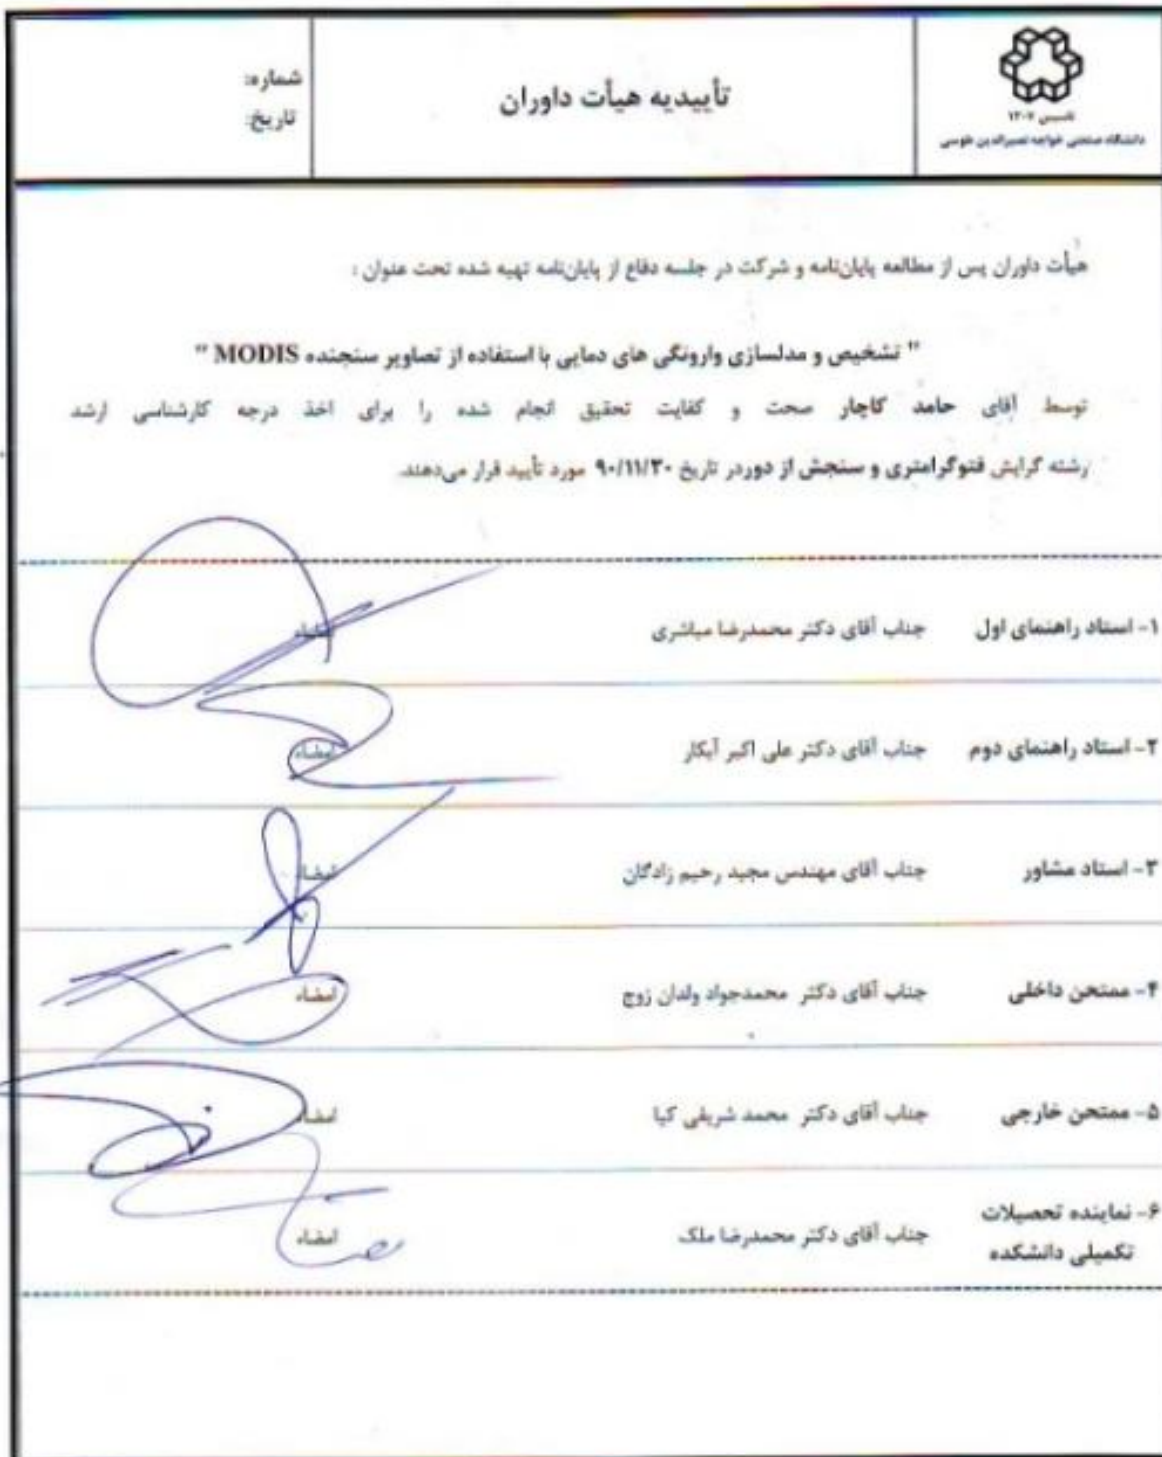 تأسیس ۱۳۰۷
دانشگاه صنعتی خواجه نصیرالدین طوسی
تأییدیه هیأت داوران
شماره:
تاریخ:
هیأت داوران پس از مطالعه پایان‌نامه و شرکت در جلسه دفاع از پایان‌نامه تهیه شده تحت عنوان :
" تشخیص و مدلسازی وارونگی های دمایی با استفاده از تصاویر سنجنده MODIS "
توسط آقای حامد کاچار صحت و کفایت تحقیق انجام شده را برای اخذ درجه کارشناسی ارشد
رشته گرایش فتوگرامتری و سنجش از دوردر تاریخ ۹۰/۱۱/۳۰ مورد تأیید قرار می‌دهند.
۱- استاد راهنمای اول جناب آقای دکتر محمدرضا مباشری امضاء
۲- استاد راهنمای دوم جناب آقای دکتر علی اکبر آبکار امضاء
۳- استاد مشاور جناب آقای مهندس مجید رحیم زادگان امضاء
۴- ممتحن داخلی جناب آقای دکتر محمدجواد ولدان زوج امضاء
۵- ممتحن خارجی جناب آقای دکتر محمد شریفی کیا امضاء
۶- نماینده تحصیلات جناب آقای دکتر محمدرضا ملک امضاء
تکمیلی دانشکده